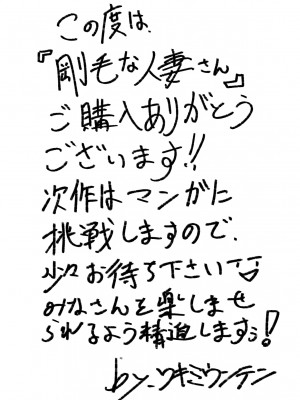 この度は、
『剛毛な人妻さん』
ご購入ありがとう
ございます!!
次作はマンガに
挑戦しますので、
少々お待ち下さい
みなさんを楽しませ
られるよう精進しますぅ!
by.ツキミウンテン